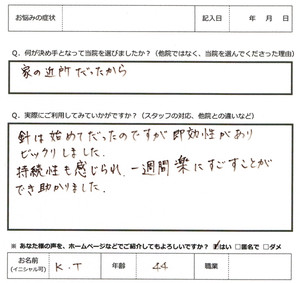 お悩みの症状 記入日 年 月 日
Q．何が決め手となって当院を選びましたか？（他院ではなく、当院を選んでくださった理由）
家の近所だったから
Q．実際にご利用してみていかがですか？（スタッフの対応、他院との違いなど）
針は始めてだったのですが即効性があり
ビックリしました。
持続性も感じられ、一週間楽にすごすことが
でき助かりました。
※ あなた様の声を、ホームページなどでご紹介してもよろしいですか？ はい □匿名で □ダメ
お名前 K.T 年齢 44 職業
(イニシャル可)